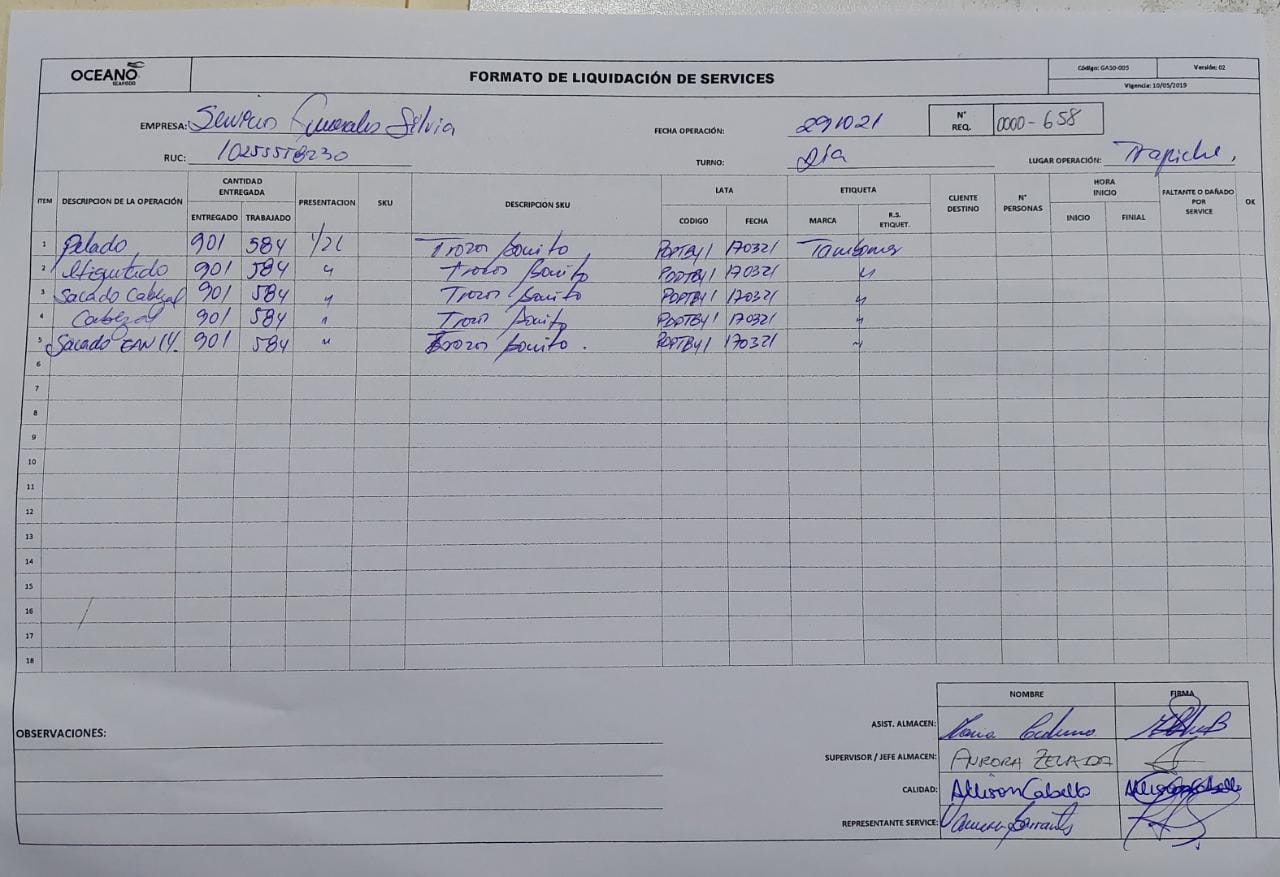 OCEANO SEAFOOD
FORMATO DE LIQUIDACIÓN DE SERVICES
Código: GASO-005 Versión: 02
Vigencia: 10/05/2019
EMPRESA: Servicios Generales Silvia
FECHA OPERACIÓN: 291021
N° REQ. 0000-658
RUC: 10255578230
TURNO: Día
LUGAR OPERACIÓN: Trapiche,
ITEM DESCRIPCION DE LA OPERACIÓN CANTIDAD ENTREGADA PRESENTACION SKU DESCRIPCION SKU LATA ETIQUETA CLIENTE DESTINO N° PERSONAS HORA INICIO FALTANTE O DAÑADO POR SERVICE OK
ENTREGADO TRABAJADO CODIGO FECHA MARCA R.S. ETIQUET. INICIO FINIAL
1 Pelado 901 584 1/2L Trozos Bonito PDPTBY1 170321
2 Etiquetado 901 584 " Trozos Bonito PDPTBY1 170321 "
3 Sacado Cabezal 901 584 " Trozos Bonito PDPTBY1 170321 "
4 Cabezal 901 584 " Trozos Bonito PDPTBY1 170321 "
5 Sacado EAN 14. 901 584 " Trozos Bonito . PDPTBY1 170321 "
6
7
8
9
10
11
12
13
14
15
16
17
18
NOMBRE FIRMA
OBSERVACIONES:
ASIST. ALMACEN:
SUPERVISOR / JEFE ALMACEN: AURORA ZELADA
CALIDAD: Allison Cabello Allison Cabello
REPRESENTANTE SERVICE: Vanessa Barrantes